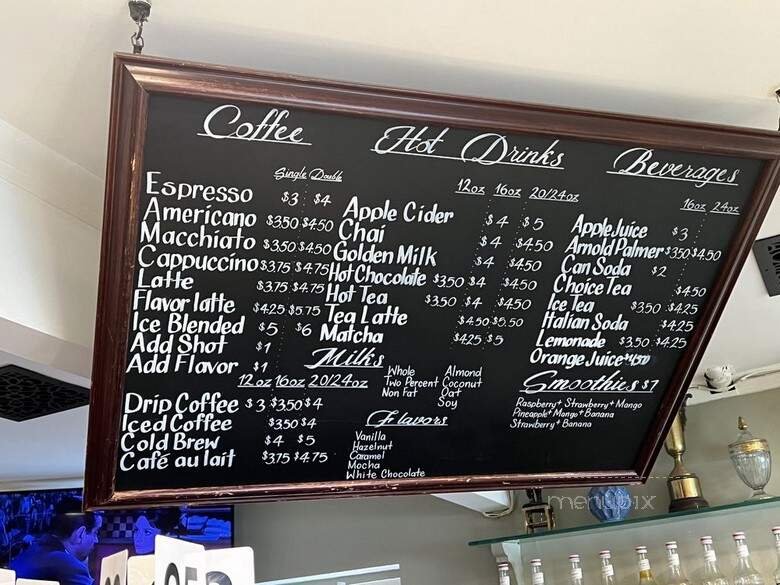 Coffee
Single Double
Espresso $3 $4
Americano $3.50 $4.50
Macchiato $3.50 $4.50
Cappuccino $3.75 $4.75
Latte $3.75 $4.75
Flavor latte $4.25 $5.75
Ice Blended $5 $6
Add Shot $1
Add Flavor $1
12oz 16oz 20/24oz
Drip Coffee $3 $3.50 $4
Iced Coffee $3.50 $4
Cold Brew $4 $5
Café au lait $3.75 $4.75
Hot Drinks
12oz 16oz 20/24oz
Apple Cider $4 $5
Chai $4 $4.50
Golden Milk $4 $4.50
Hot Chocolate $3.50 $4 $4.50
Hot Tea $3.50 $4 $4.50
Tea Latte $4.50 $5.50
Matcha $4.25 $5
Milks
Whole Almond
Two Percent Coconut
Non Fat Oat
Soy
Flavors
Vanilla
Hazelnut
Caramel
Mocha
White Chocolate
Beverages
16oz 24oz
Apple Juice $3
Arnold Palmer $3.50 $4.50
Can Soda $2
Choice Tea $4.50
Ice Tea $3.50 $4.25
Italian Soda $4.25
Lemonade $3.50 $4.25
Orange Juice $4.50
Smoothies $7
Raspberry + Strawberry + Mango
Pineapple + Mango + Banana
Strawberry + Banana
menupix